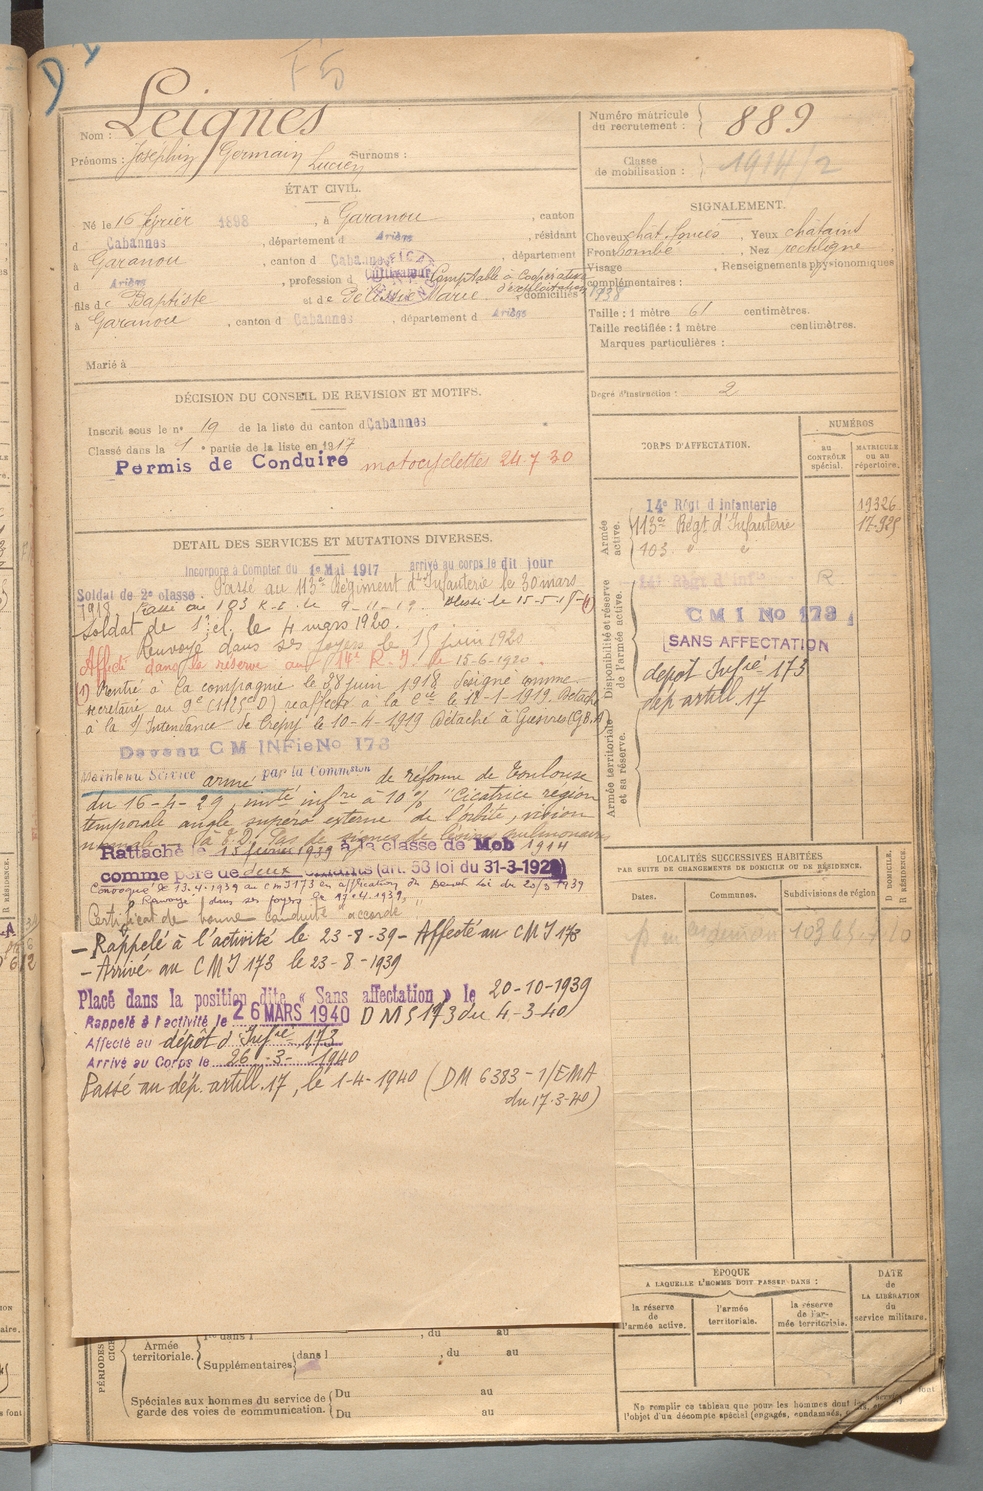 F 5
Nom : Leignes
Prénoms : Joséphin Germain Lucien Surnoms :
Numéro matricule du recrutement : 889
Classe de mobilisation : 1914/2
ÉTAT CIVIL.
Né le 16 février 1898, à Garanou, canton
d Cabannes, département d Ariège, résidant
à Garanou, canton d Cabannes, département
d Ariège, profession d cultivateur Comptable à Coopérative d'exploitation 1938
fils de Baptiste et de Marie, domiciliés
à Garanou, canton d Cabannes, département d Ariège
Marié à
SIGNALEMENT.
Cheveux chat. foncés, Yeux châtains
Front bombé, Nez rectiligne
Visage , Renseignements physionomiques
complémentaires :
Taille : 1 mètre 61 centimètres.
Taille rectifiée : 1 mètre centimètres.
Marques particulières :
Degré d'instruction : 2
DÉCISION DU CONSEIL DE REVISION ET MOTIFS.
Inscrit sous le n° 19 de la liste du canton d Cabannes
Classé dans la 1e partie de la liste en 1917
Permis de Conduire motocyclettes 24-7-30
CORPS D'AFFECTATION.
NUMÉROS
au CONTRÔLE spécial.
MATRICULE ou au répertoire.
Armée active.
14e Régt d'infanterie 19326
113e Régt d'Infanterie 17.925
103. " "
Disponibilité et réserve de l'armée active.
141 Régt d'inf R.
C M I No 173
SANS AFFECTATION
dépôt Infie 173
dép artill. 17
Armée territoriale et sa réserve.
DETAIL DES SERVICES ET MUTATIONS DIVERSES.
Incorporé à Compter du 1er Mai 1917 arrivé au corps le dit jour
Soldat de 2e classe. Passé au 113e Régiment d'Infanterie le 30 mars
1918. Passé au 103 R.I. le 9-11-19. Blessé le 15-5-18 (1)
Soldat de 1e cl. le 4 mars 1920.
Renvoyé dans ses foyers le 15 juin 1920
Affecté dans la réserve au 14e R.I. le 15-6-1920.
(1) Rentré à la compagnie le 28 juin 1918 désigné comme
secrétaire au 9e réaffecté à la Cie le 12-1-1919. Détaché
à la S/Intendance de Crépy le 10-4-1919 Détaché à
CM INFie No 173
Maintenu Service armé par la Commsion de réforme de Toulouse
du 16-4-29, invté infre à 10% "Cicatrice région
temporale angle supero externe de l'orbite, vision
normale Pas de signes de lésions pulmonaires
Rattaché le 15 février 1939 à la classe de Mob 1914
comme père de deux enfants (art. 58 loi du 31-3-1928)
Convoqué le 13.4.1939 au CMI 173 en application du
Renvoyé dans ses foyers le 17-4-1939
Certificat de bonne conduite "accordé"
– Rappelé à l'activité le 23-8-39 – Affecté au CMI 173
– Arrivé au CMI 173 le 23-8-1939
Placé dans la position dite « Sans affectation » le 20-10-1939
Rappelé à l'activité le 26 MARS 1940 DMS 173 du 4-3-40
Affecté au dépôt d'Infie 173
Arrivé au Corps le 26-3-1940
Passé au dép. artill. 17, le 1-4-1940 (DM 6383-1/EMA
du 17-3-40)
LOCALITÉS SUCCESSIVES HABITÉES
PAR SUITE DE CHANGEMENTS DE DOMICILE OU DE RÉSIDENCE.
Dates.
Communes.
Subdivisions de région
D DOMICILE.
R RÉSIDENCE.
ÉPOQUE
A LAQUELLE L'HOMME DOIT PASSER DANS :
la réserve de l'armée active.
l'armée territoriale.
la réserve de l'armée territoriale.
DATE de LA LIBÉRATION du service militaire.
Armée territoriale.
dans l , du au
Supplémentaires dans l , du au
Spéciales aux hommes du service de garde des voies de communication.
Du au
Du au
Ne remplir ce tableau que pour les hommes dont
l'objet d'un décompte spécial (engagés, condamnés,